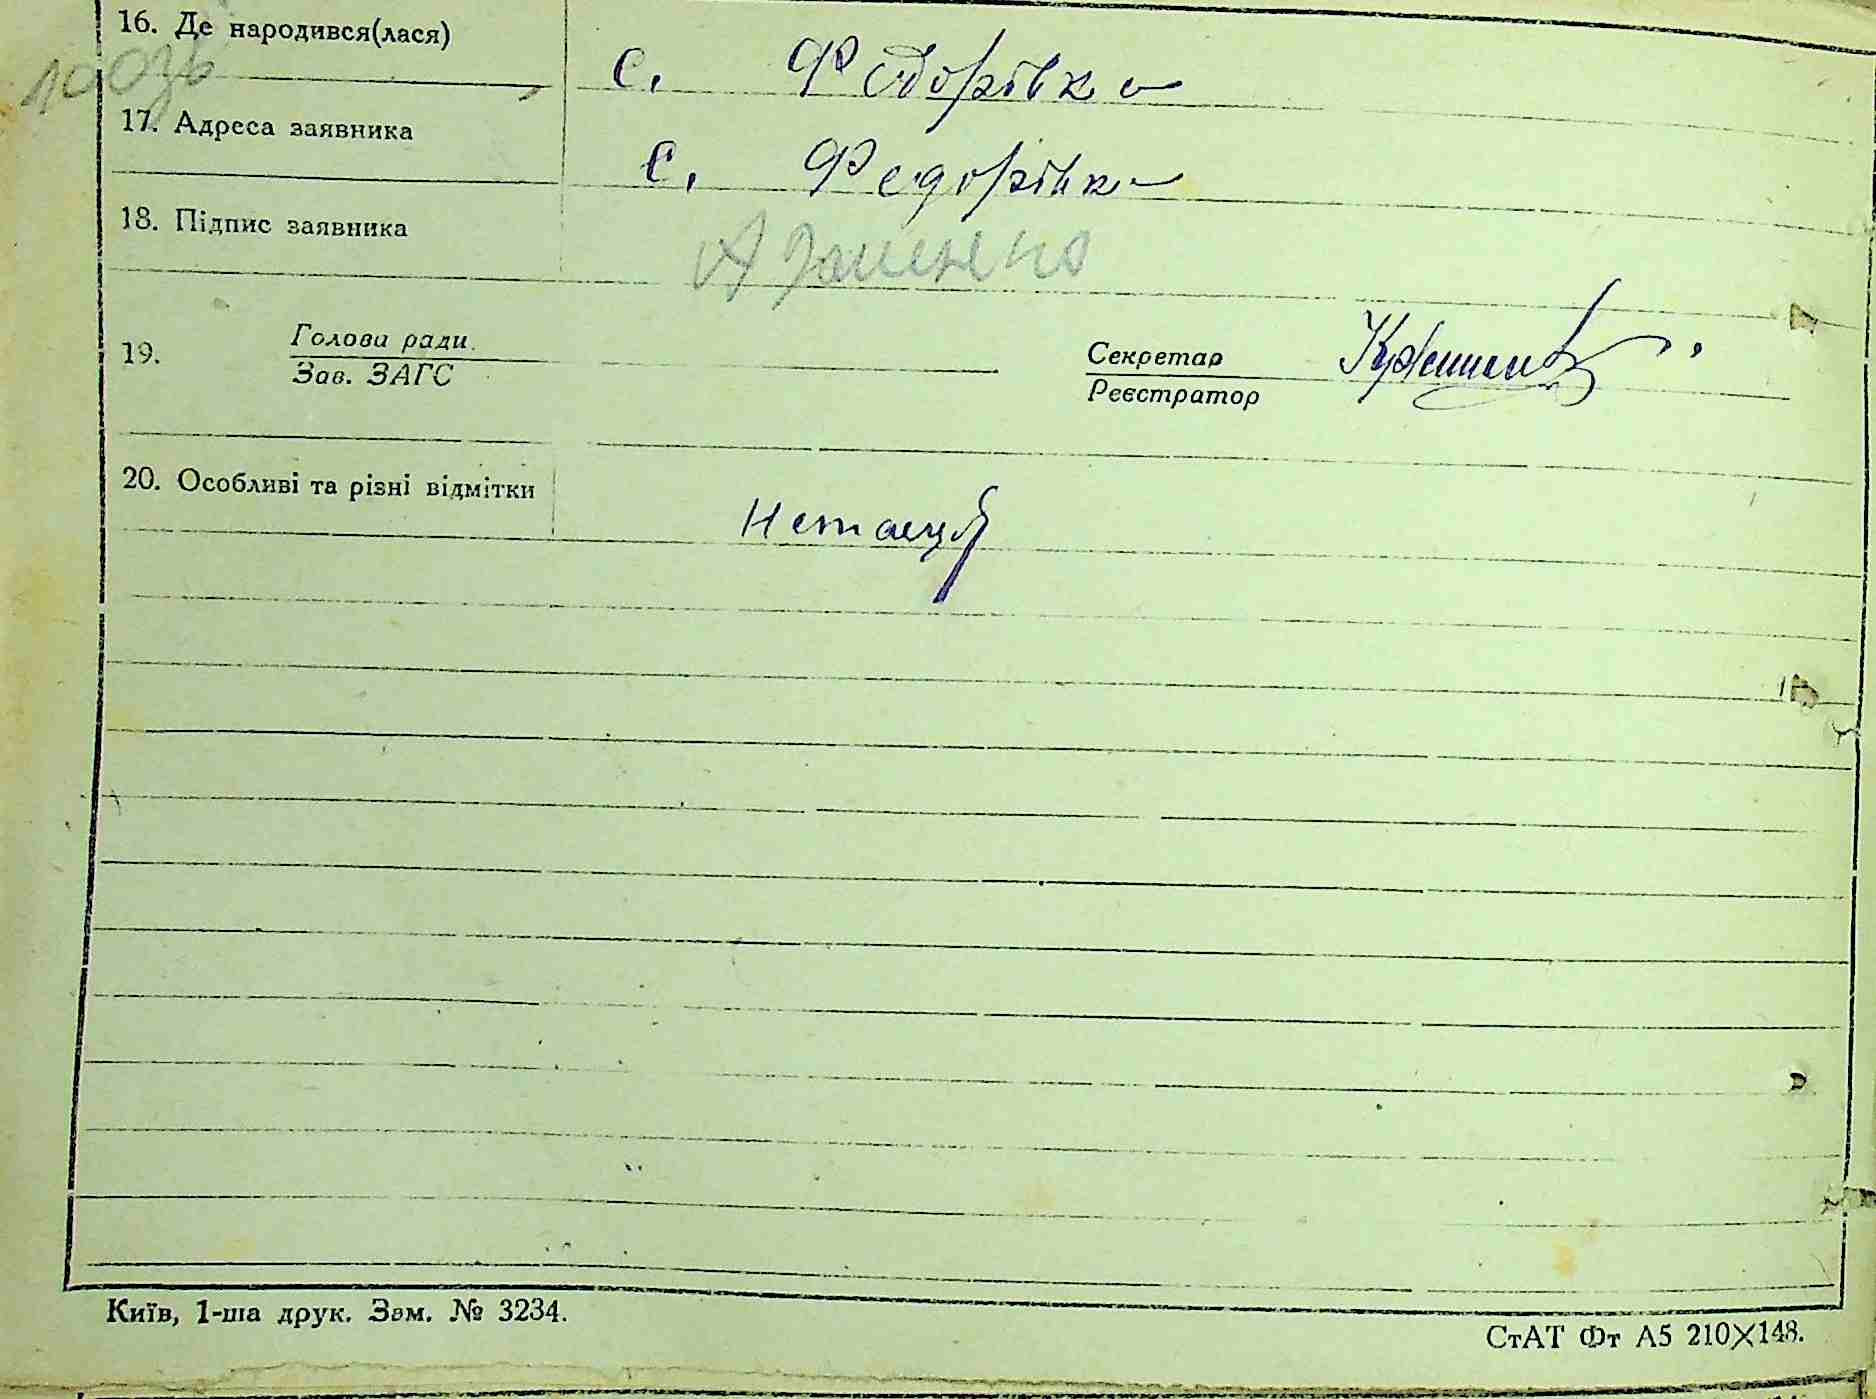 16. Де народився(лася) с. Федорівка
17. Адреса заявника с. Федорівка
18. Підпис заявника
19. Голова ради Секретар
Зав. ЗАГС Реєстратор
20. Особливі та різні відмітки
Київ, 1-ша друк. Зам. № 3234.
СтАТ Фт А5 210×148.